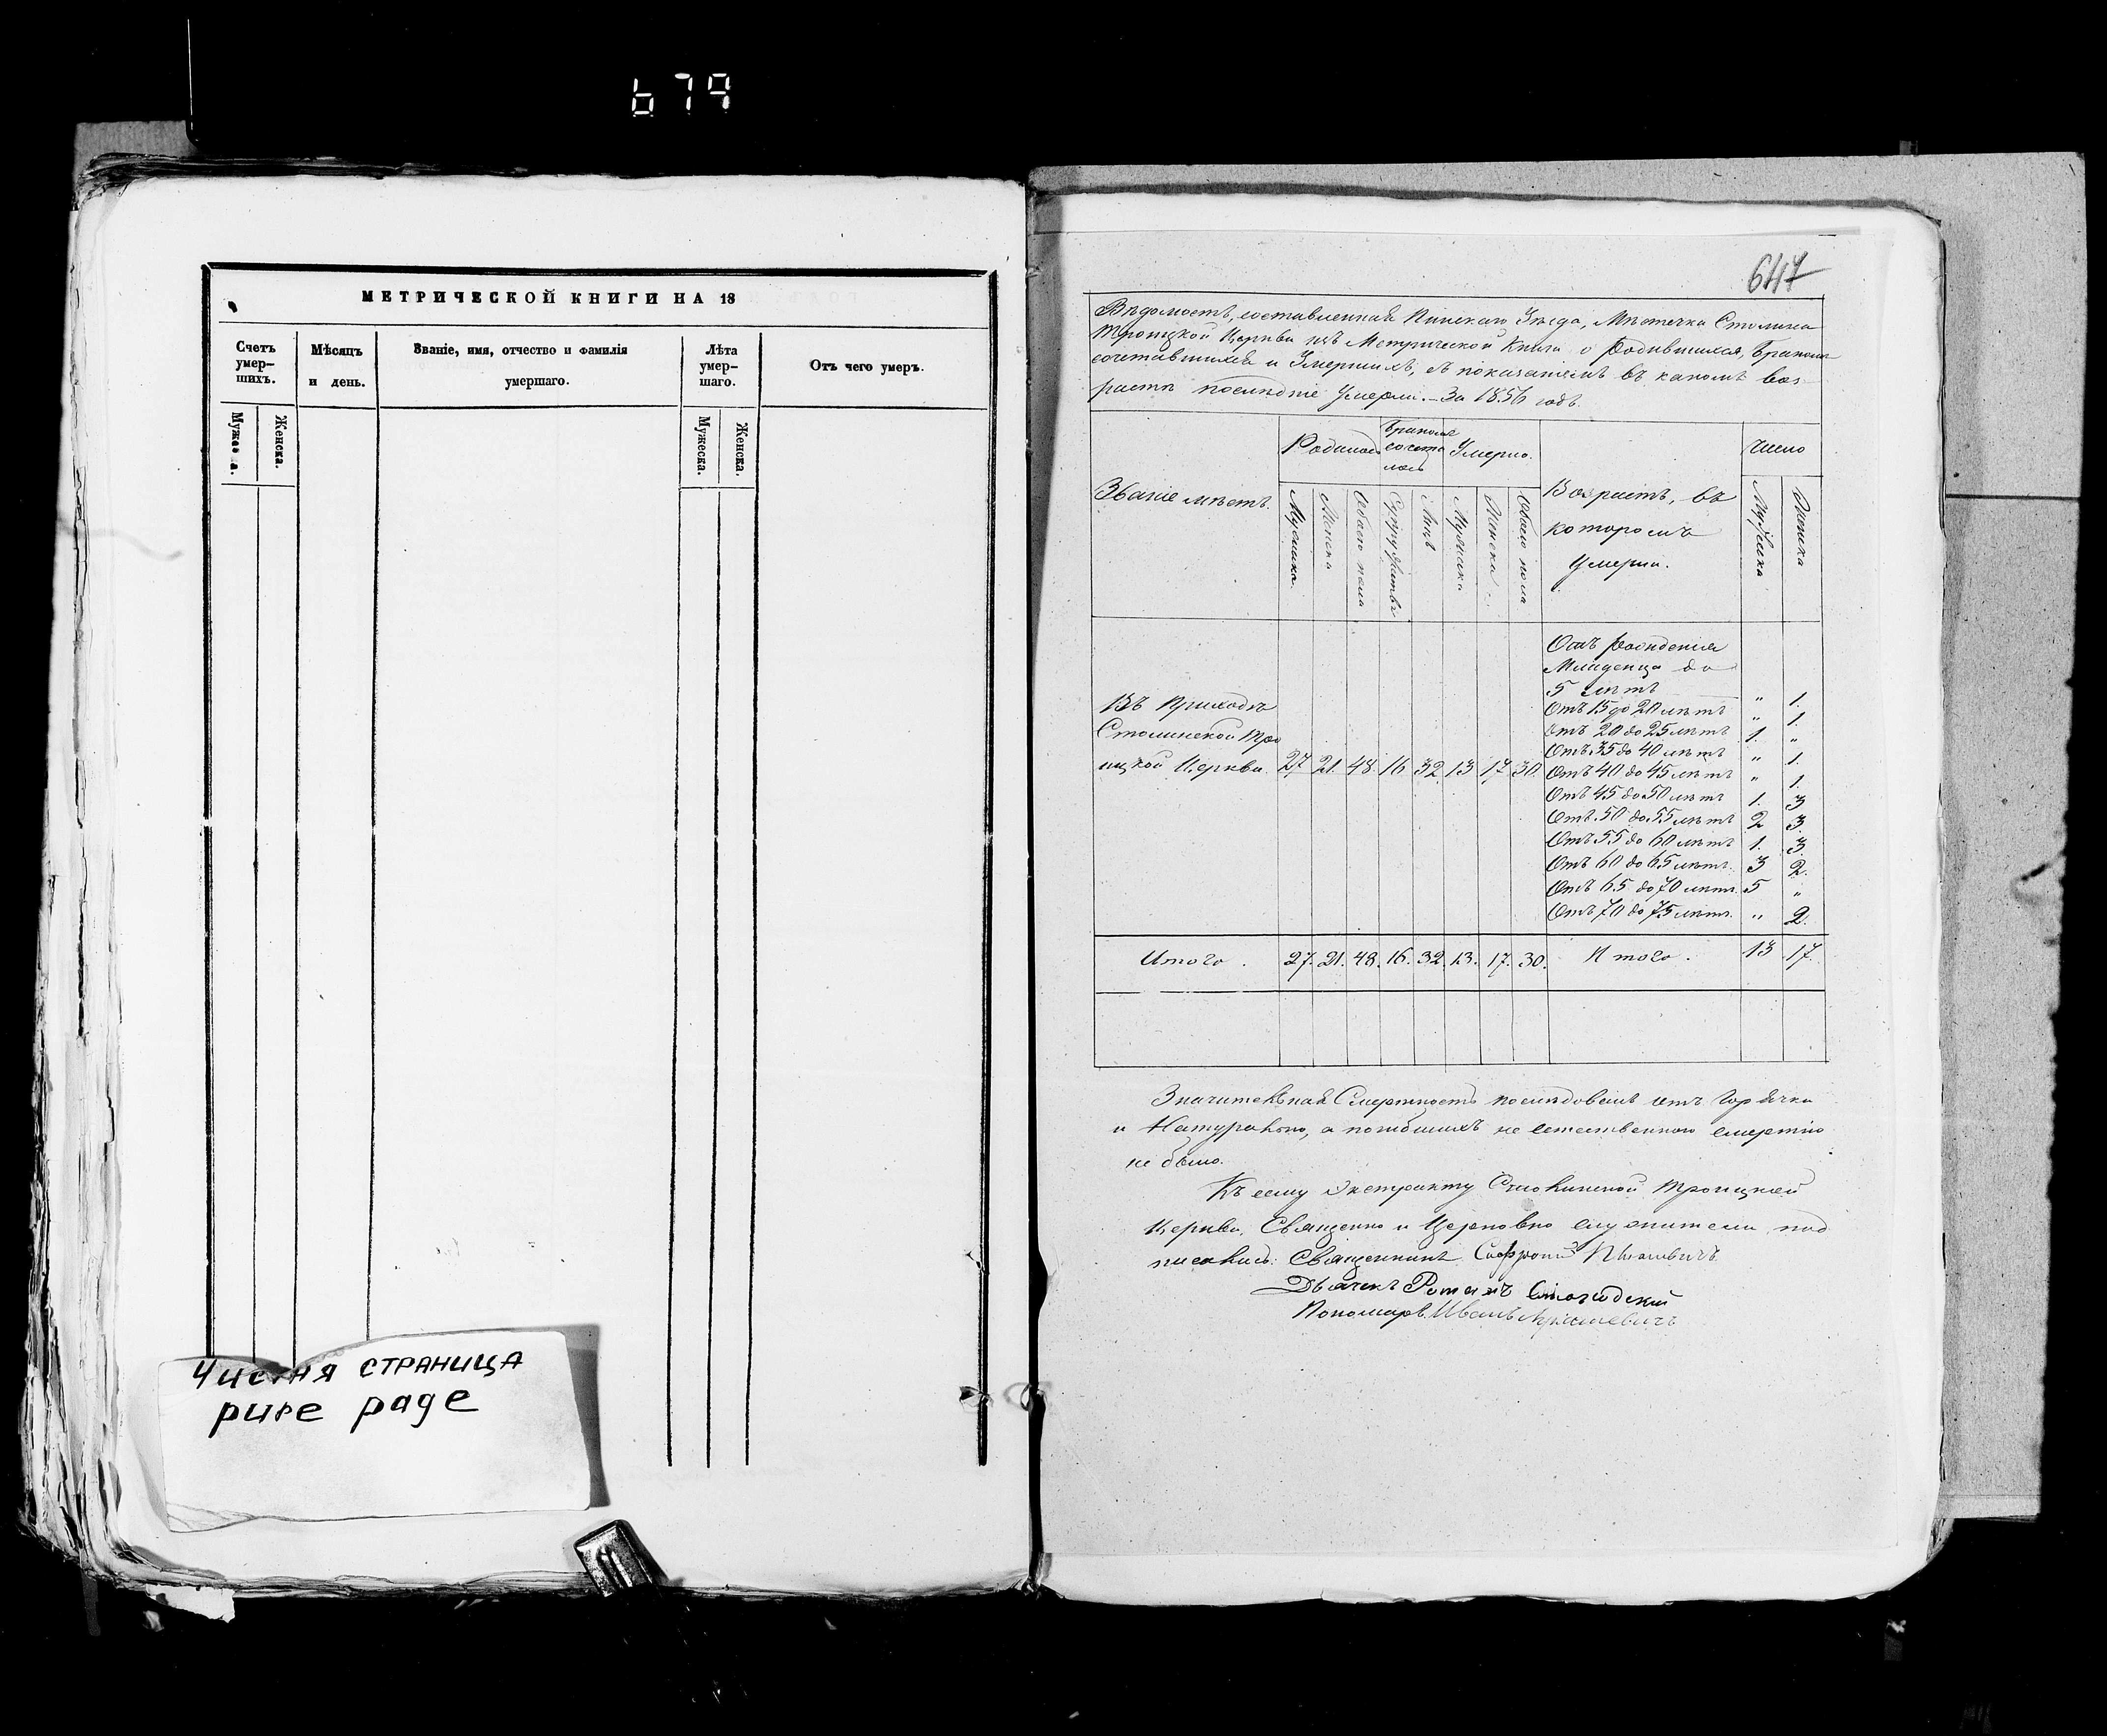 679
МЕТРИЧЕСКОЙ КНИГИ НА 18
Счетъ умер-шихъ.
Мѣсяцъ и день.
Званіе, имя, отчество и фамилія умершаго.
Лѣта умер-шаго.
Отъ чего умеръ.
Женска.
Мужеска.
Женска.
Чистая страница
pure page
647
Вѣдомость, составленная Пинскаго Уѣзда, Мѣстечка Столина
Троицкой Церкви изъ Метрической Книги о Родившихся, Бракомъ
сочетавшихся и Умершихъ, съ показаніемъ въ какомъ воз
растѣ послѣдніе Умерли. – За 1856 годъ.
Званіе мѣстъ.
Родилось
Бракомъ сочета лось
Умерло.
Возрастъ, въ
которомъ
Умерли.
Число
Мужеска
Женска
Обоего пола
Супружествъ
Лицъ
Мужеска
Женска
Обоего пола
Мужеска
Женска
Отъ рожденія
Младенца до
5 лѣтъ „ 1.
Отъ 15 до 20 лѣтъ „ 1.
Отъ 20 до 25 лѣтъ 1. „
Отъ 35 до 40 лѣтъ „ 1.
Отъ 40 до 45 лѣтъ „ 1.
Отъ 45 до 50 лѣтъ 1. 3
Отъ 50 до 55 лѣтъ 2 3.
Отъ 55 до 60 лѣтъ 1. 3
Отъ 60 до 65 лѣтъ. 3 2.
Отъ 65 до 70 лѣтъ. 5 „
Отъ 70 до 75 лѣтъ. „ 2.
Въ Приходѣ
Столинской Тро
ицкой Церкви. 27. 21. 48. 16 32. 13 17. 30.
Итого . 27. 21. 48. 16. 32. 13. 17. 30. Итого . 13 17.
Значительная Смертность послѣдовала отъ Горячки
и Натурально, а погибшихъ не естественною смертію
не было.
Къ сему Экстракту Столинской Троицкой
Церкви, Священно и Церковно служители под
писались: Священникъ Софроній
Дьячекъ Романъ
Пономарь Иванъ